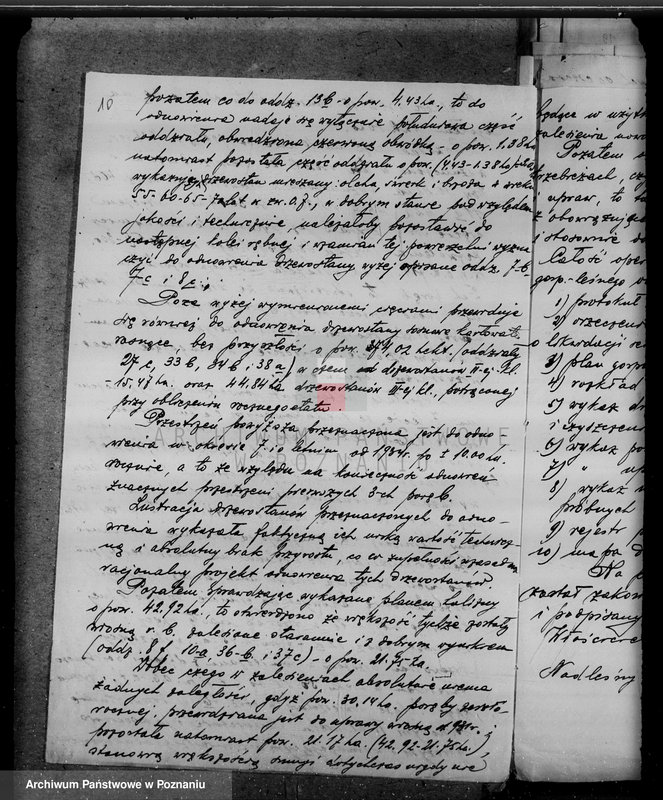 10
pozatem co do oddz. 19b - o pow. 4.43 ha., to do
odnowienia nadaje się wyłącznie południowa część
oddziału, obwiedziona czerwoną obwódką - o pow. 1.38 ha
natomiast pozostała część oddziału o pow. (4.43-1.38 ha)
wykazuje drzewostan mieszany: olcha, świerk i brzoza w wieku
55-60-65-, w dobrym stanie pod względem
jakości i technicznie, należałoby pozostawić do
następnej kolei rębnej i wzamian tej powierzchni wyzna-
czyć do odnowienia drzewostany wyżej opisane oddz. 7-b,
7c i 8
Poza wyżej wymienionemi cięciami przewiduje
się również do odnowienia drzewostany sosnowe karłowate
rosnące, bez przyszłości o pow. 4,02 hekt. (oddziały
27c, 33b, 34b i 38a) w osem od drzewostanów II-ej kl.
- 15.47 ha. oraz 44.84 ha drzewostanów III-ej kl., potrąconej
przy obliczeniu rocznego etatu.
Przestrzeń powyższa przeznaczona jest do odno-
wienia w okresie 10 letnim od 1934r. po ± 10.00 ha.
rocznie, a to ze względu na konieczność odnowień
znacznych przestrzeni pierwszych 3-ch poręb.
Lustracja drzewostanów przeznaczonych do odno-
wienia wykazała faktyczną ich niską wartość technicz-
ną i absolutny brak przyrostu, co w zupełności uzasadnia
racjonalny projekt odnowienia tych drzewostanów.
Pozatem sprawdzając wykazane planem halizny
o pow. 42.92 ha., to stwierdzono że większość tychże została
wiosną r. b. zalesiona starannie i z dobrym wynikiem
(oddz. 8f, 10a, 36-b i 37c) - o pow. 21.75 ha.
Wobec czego w zalesieniach absolutnie niema
żadnych zaległości, gdyż pow. 30.14 ha. poręby zeszło-
rocznej przeorana jest do uprawy wiosną
pozostała natomiast pow. 21.17 ha. (42.92-21.75 ha),
stanowią większością smugi dotychczas nigdy nie
będące w użytk
zalesienia
Pozatem
upraw, to
z obowiązując
i stosownie do
Całość oper
gosp.-leśnego
1) protokół
2) orzeczeni
o likwidacji
3) plan gospo
4) rozkład
5) wykaz
i czyszczeni
6) wykaz po
7) "
8) wykaz
próbnych
9) rejestr
10) mapa
Na
został zakoń
i podpisany
Nadleśny
Archiwum Państwowe w Poznaniu